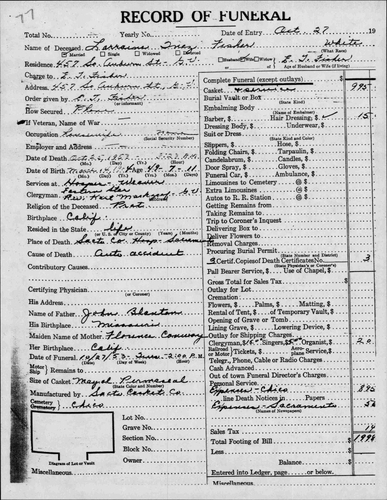 77
RECORD OF FUNERAL
Total No. Yearly No. Date of Entry Oct. 27 19
Name of Deceased Lorraine May Fisher White
(What Race)
Single Married Widowed Divorced Husband Wife of E. T. Fisher
Residence 457 So. Auburn St. G.V. Age of Husband or Wife (if living)
Charge to E. T. Fisher
Address 457 So. Auburn St., G.V.
Order given by E. T. Fisher
How Secured Phone
If Veteran, Name of War
Occupation Housewife None
(Social Security Number)
Employer and Address
Date of Death Oct 25, 1953
Date of Birth March 14
Services at Hooper-Weaver
Clergyman Rev.
Religion of the Deceased Prot
Birthplace Calif.
Resided in the State Life
(or U.S. if City or County) (Years) (Months)
Place of Death Sacto. Co. Hosp. Sacramento
Cause of Death Auto accident
Contributory Causes
Certifying Physician
(or Coroner)
His Address
Name of Father John Blanton
His Birthplace Missouri
Maiden Name of Mother Florence Conway
Her Birthplace Calif.
Date of Funeral 10/27/53 Tues-2:00 P.M.
Motor Ship Remains to
Size of Casket Permaseal
(State Color and Number)
Manufactured by Sacto Casket Co
Cemetery Crematory Chico
Lot No.
Grave No.
Section No.
Block No.
Owner
Diagram of Lot or Vault
Miscellaneous
Complete Funeral (except outlays) $
Casket & services 995
Burial Vault or Box
(State Kind)
Embalming Body
(Name of Embalmer)
Barber, $ Hair Dressing, $ ✓ 15
Dressing Body, $ Underwear, $
Suit or Dress
(State Kind and Color)
Slippers, $ Hose, $
Folding Chairs, $ Tarpaulin, $
Candelabrum, $ Candles, $
Door Spray, $ Gloves, $
Funeral Car, $ Ambulance, $
Limousines to Cemetery @ $
Extra Limousines @ $
Autos to R. R. Station @ $
Getting Remains from
Taking Remains to
Trip to Coroner's Inquest
Delivering Box to
Deliver Flowers to
Removal Charges
Procuring Burial Permit
(State Number and District)
3 Certif. Copies of Death Certificates No. 3
(State Physician's or Coroner's)
Pall Bearer Service, $ Use of Chapel, $
Gross Total for Sales Tax $
Outlay for Lot
Cremation
Flowers, $ Palms, $ Matting, $
Rental of Tent, $ of Temporary Vault, $
Opening of Grave or Tomb
Lining Grave, $ Lowering Device, $
Outlay for Shipping Charges
Clergyman, $ Singers, $ Organist, $ 20
Railroad or Motor Tickets, $ Aeroplane Service, $
Telegr., Phone, Cable or Radio Charges
Cash Advanced
Out of town Funeral Director's Charges
Personal Service
Expenses - Chico 895
line Death Notices in Papers
Expenses - Sacramento
(Names of Newspapers)
Sales Tax 14
Total Footing of Bill $
Less
Balance $
Entered into Ledger, page or below.
Miscellaneous